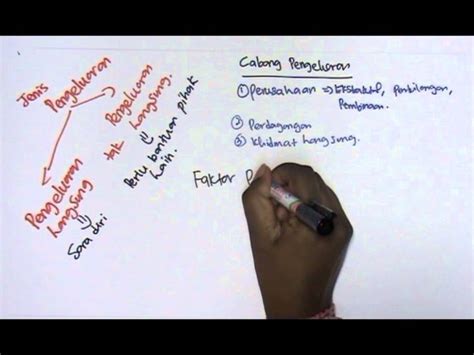 Jenis Pengeluaran
Pengeluaran
tak langsung.
Perlu bantuan pihak
lain.
Pengeluaran
langsung
Sara diri
Cabang Pengeluaran
① Perusahaan ⇒ Ekstraktif, Perkilangan,
Pembinaan.
② Perdagangan
③ Khidmat langsung.
Faktor P